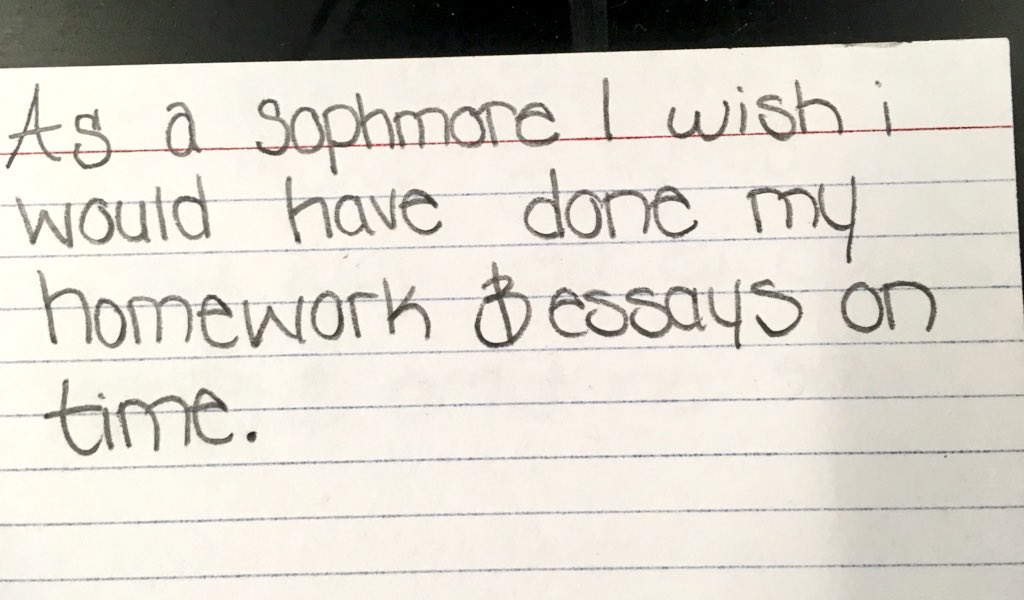 As a sophmore I wish i
would have done my
homework & essays on
time.